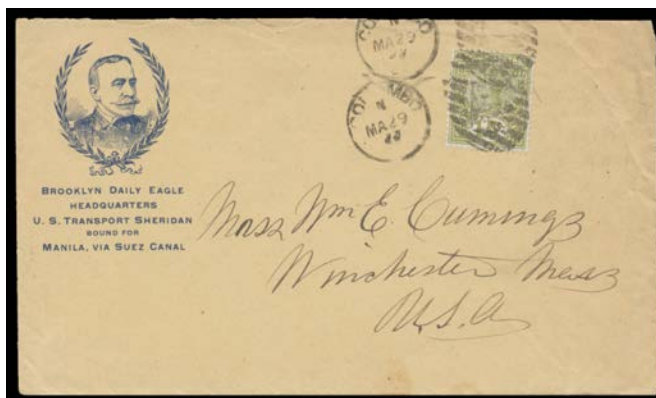 COLOMBO
N
MA 29
99
COLOMBO
N
MA 29
99
BROOKLYN DAILY EAGLE
HEADQUARTERS
U. S. TRANSPORT SHERIDAN
BOUND FOR
MANILA, VIA SUEZ CANAL
Wm E. Cumings
Winchester Mass
U.S.A